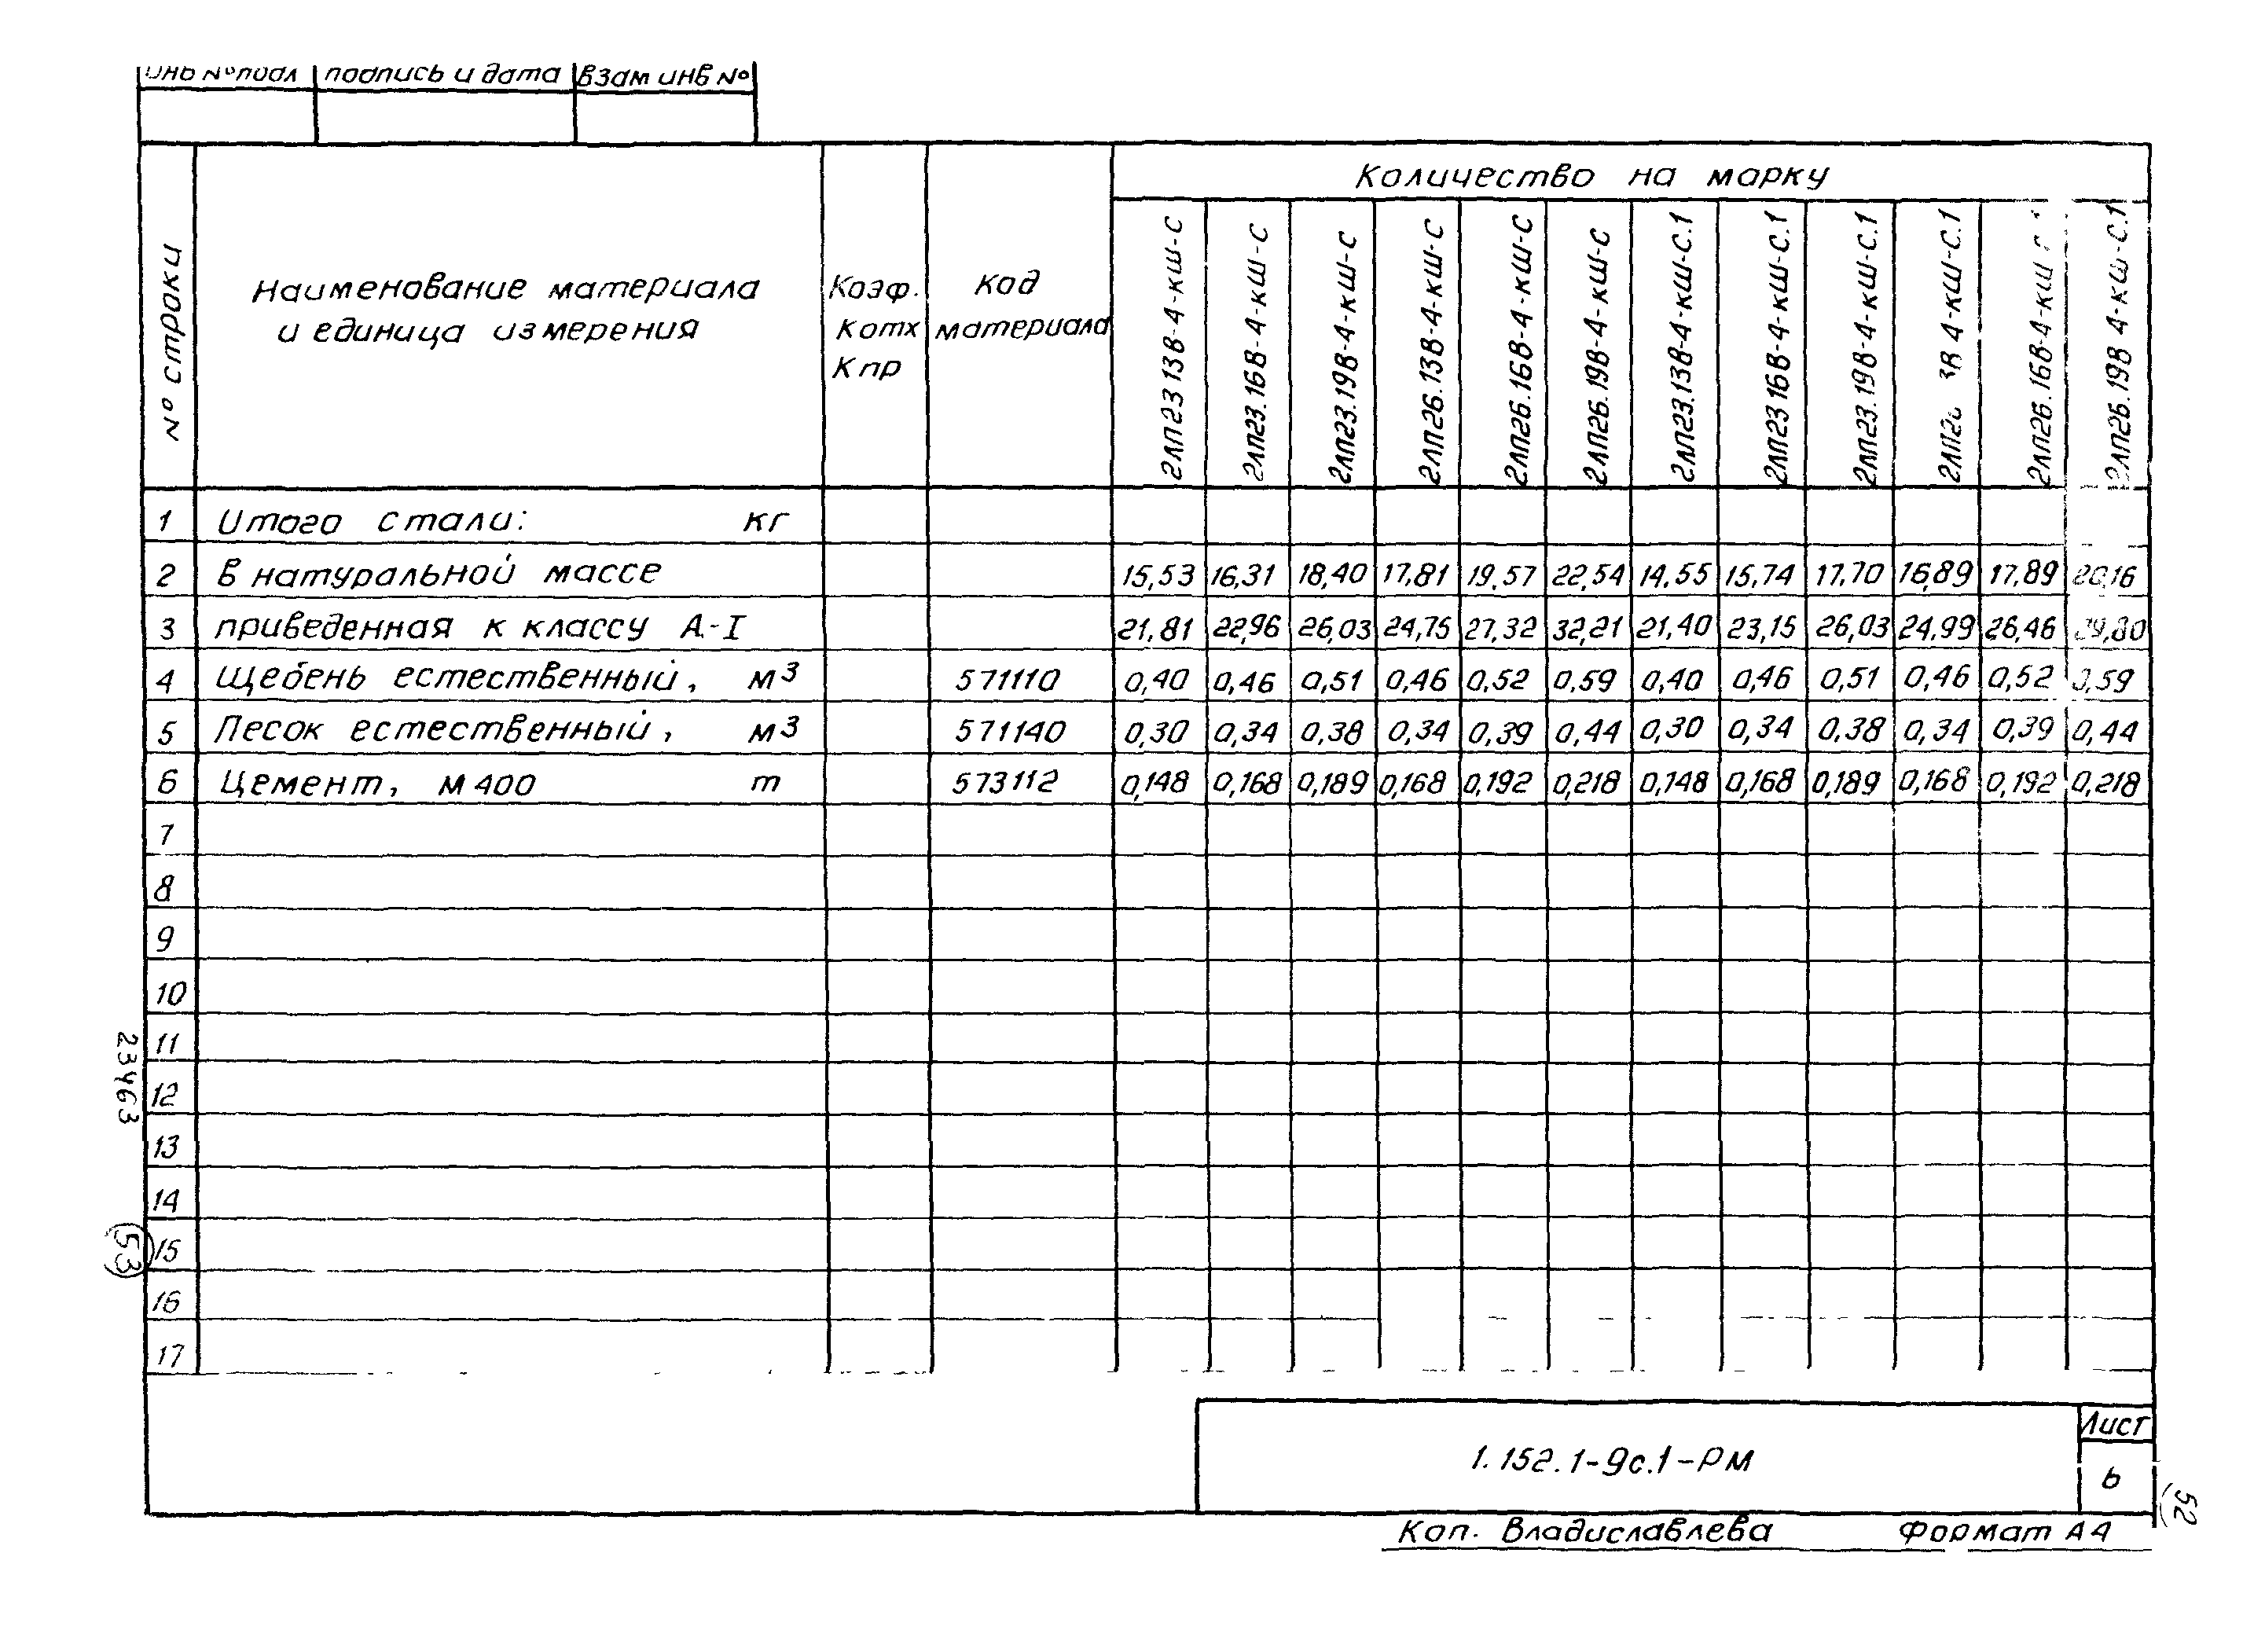 подпись и дата взам инв №
№ строки
Наименование материала
и единица измерения
Коэф.
Котх
Кпр
код
материала
Количество на марку
2ЛП23 13В-4-кш-с
2ЛП23.16В-4-кш-с
2ЛП23.19В-4-кш-с
2ЛП26.13В-4-кш-с
2ЛП26.16В-4-кш-с
2ЛП26.19В-4-кш-с
2ЛП23.13В-4-кш-с.1
2ЛП23 16В-4-кш-с.1
2ЛП23.19В-4-кш-с.1
4-кш-с.1
2ЛП26.16В-4-кш
2ЛП26.19В 4-кш-с.1
1 Итого стали: кг
2 в натуральной массе 15,53 16,31 18,40 17,81 19,57 22,54 14,55 15,74 17,70 16,89 17,89 20,16
3 приведенная к классу А-I 21,81 22,96 26,03 24,75 27,32 32,21 21,40 23,15 26,03 24,99 26,46 29,80
4 Щебень естественный, м3 571110 0,40 0,46 0,51 0,46 0,52 0,59 0,40 0,46 0,51 0,46 0,52 0,59
5 Песок естественный, м3 571140 0,30 0,34 0,38 0,34 0,39 0,44 0,30 0,34 0,38 0,34 0,39 0,44
6 Цемент, М400 т 573112 0,148 0,168 0,189 0,168 0,192 0,218 0,148 0,168 0,189 0,168 0,192 0,218
7
8
9
10
11
12
13
14
15
16
17
23463
53
1.152.1-9с.1-РМ
Лист
6
52
Коп. Владиславлева Формат А4